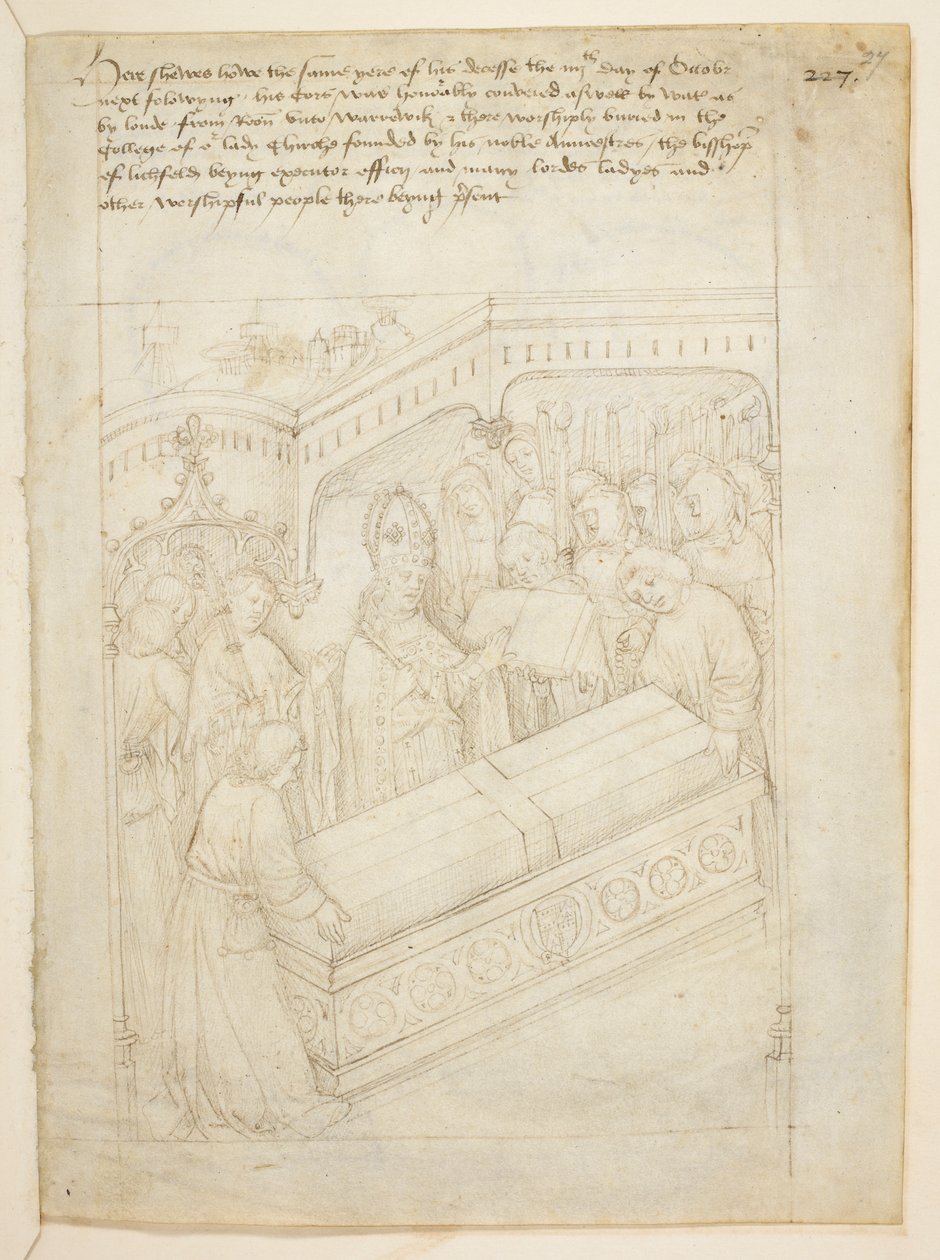 Here shewes howe the same yere of his decesse the iiijth Day of Octobr
next folowyng / his Cors was honorably conveied aswell by wat as
by londe from Roon unto Warrewik / & there worshiply buried in the
College of or lady Chirche founded by his noble Auncestres / the bisshop
of lichfeld beyng executor officij and many lordes ladyes and
other / worshipful people there beyng psent
227.
27